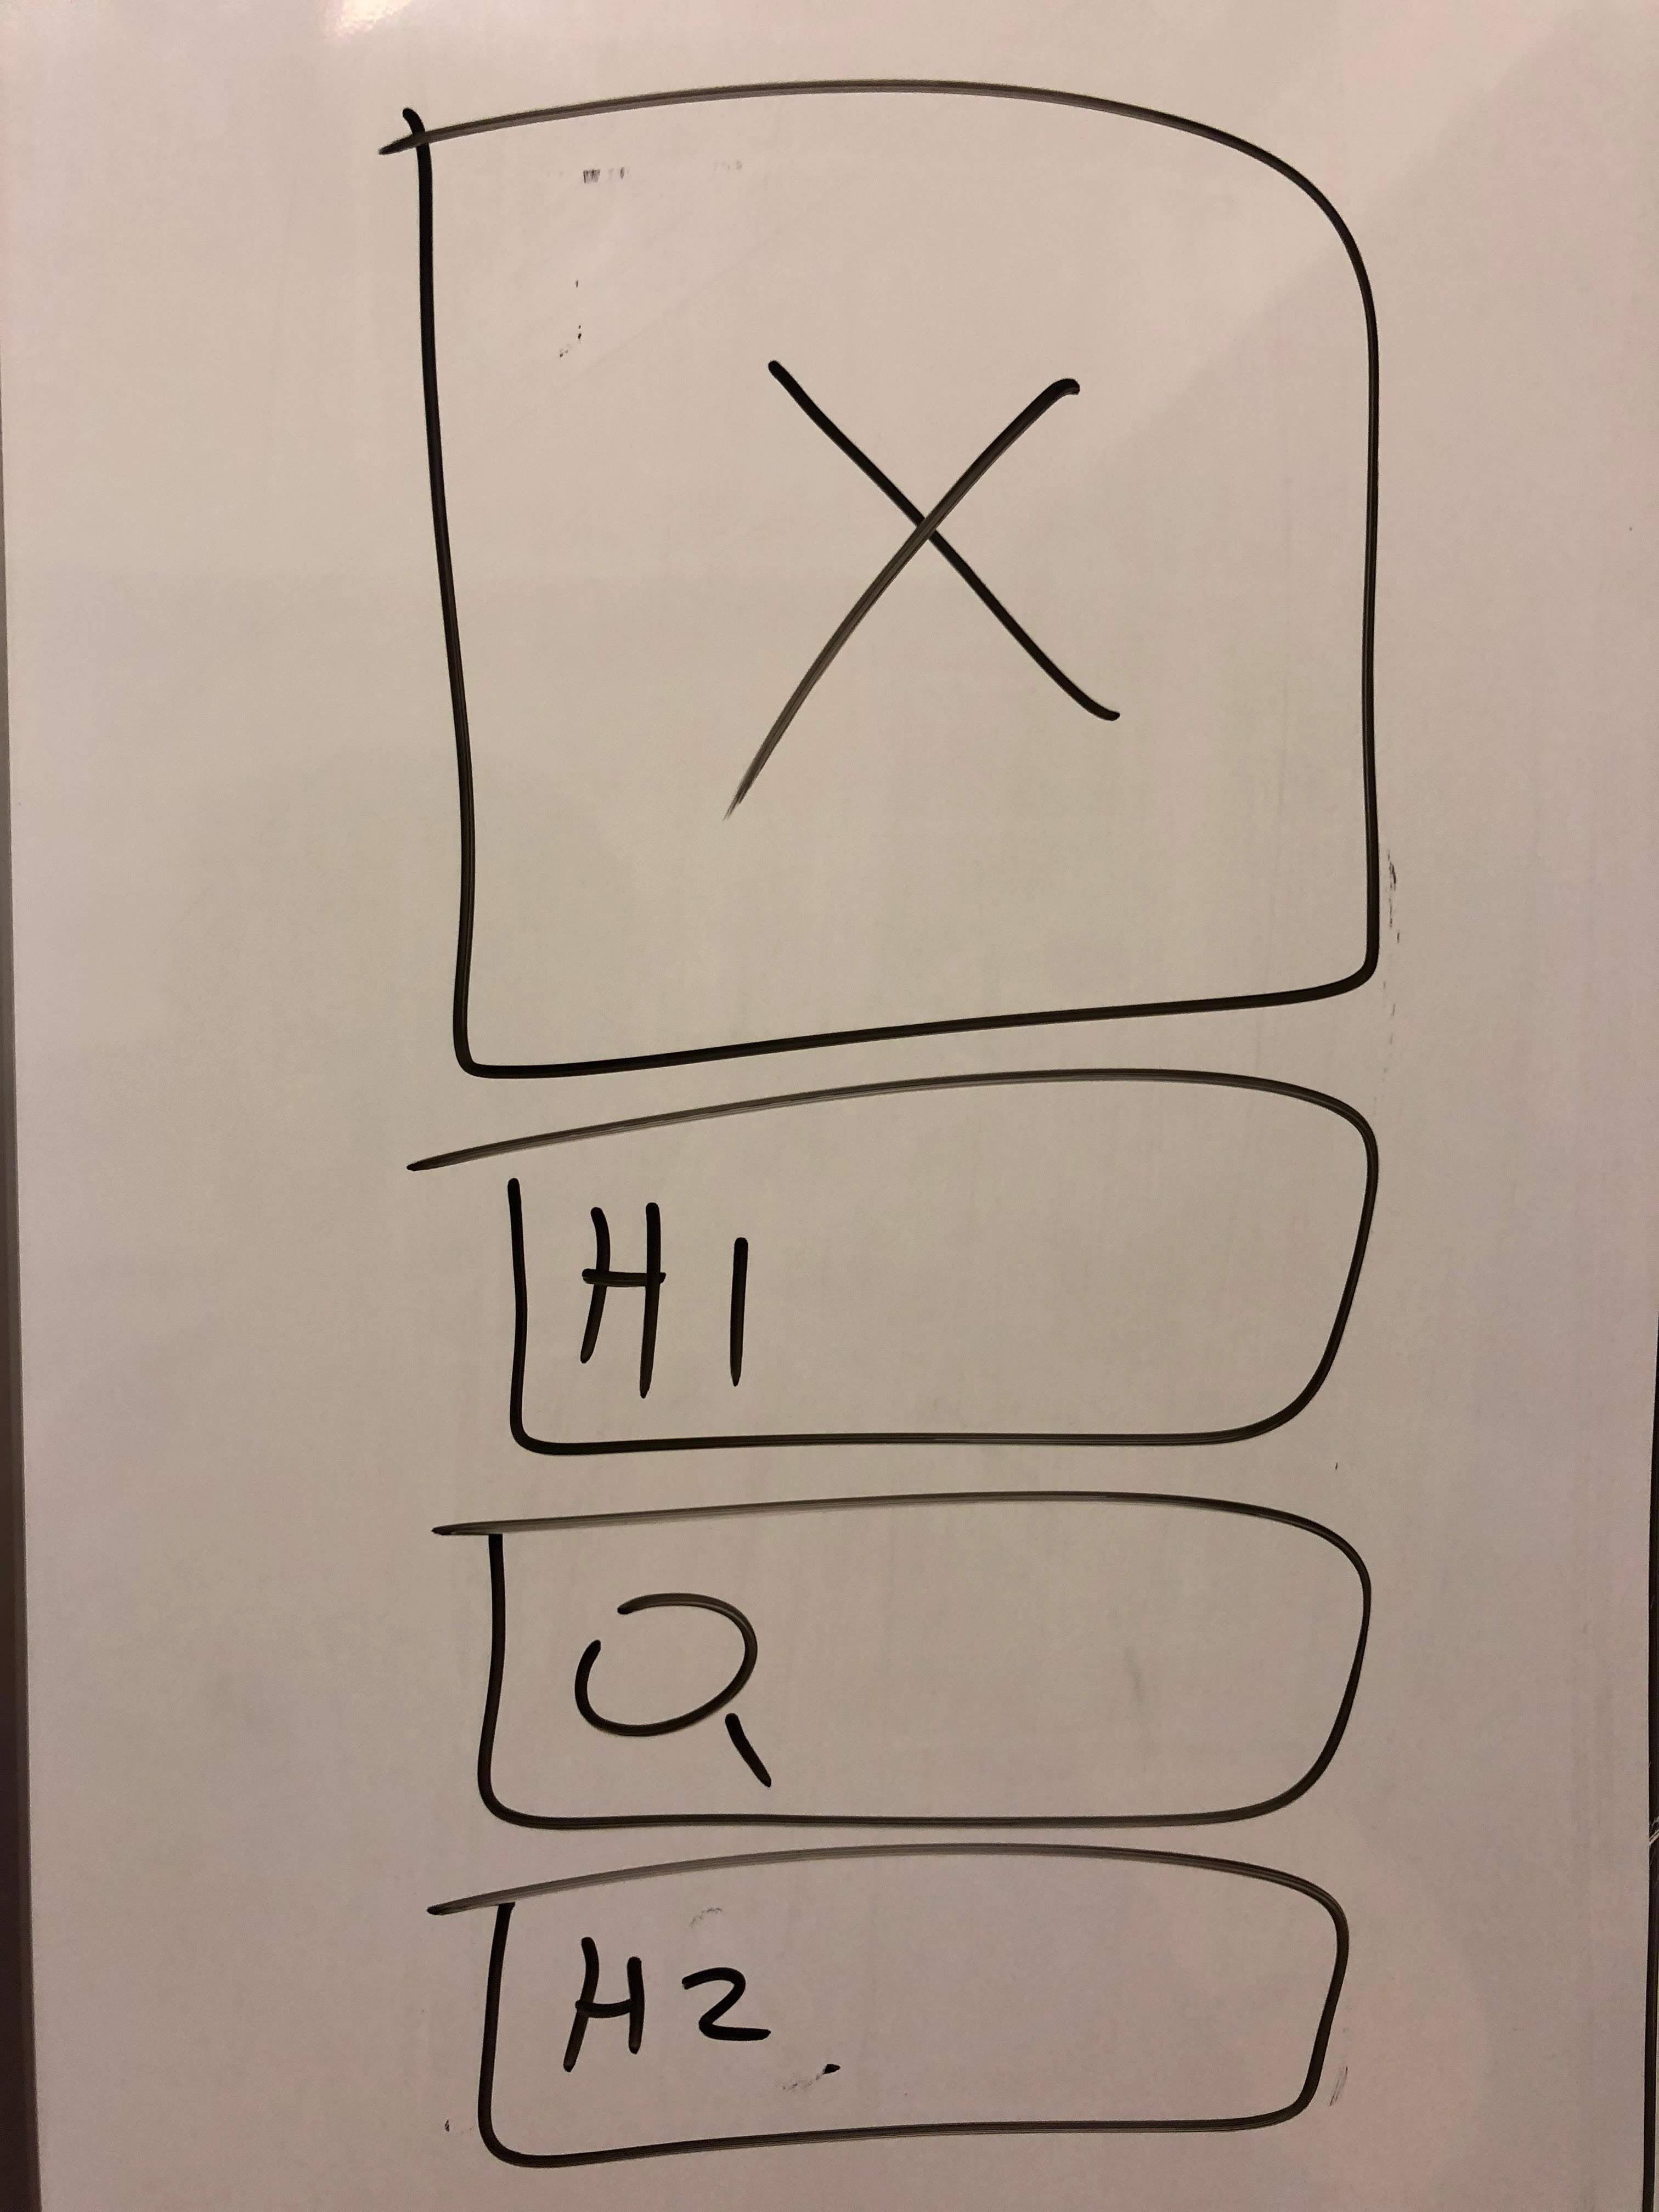 X
H1
Q
H2